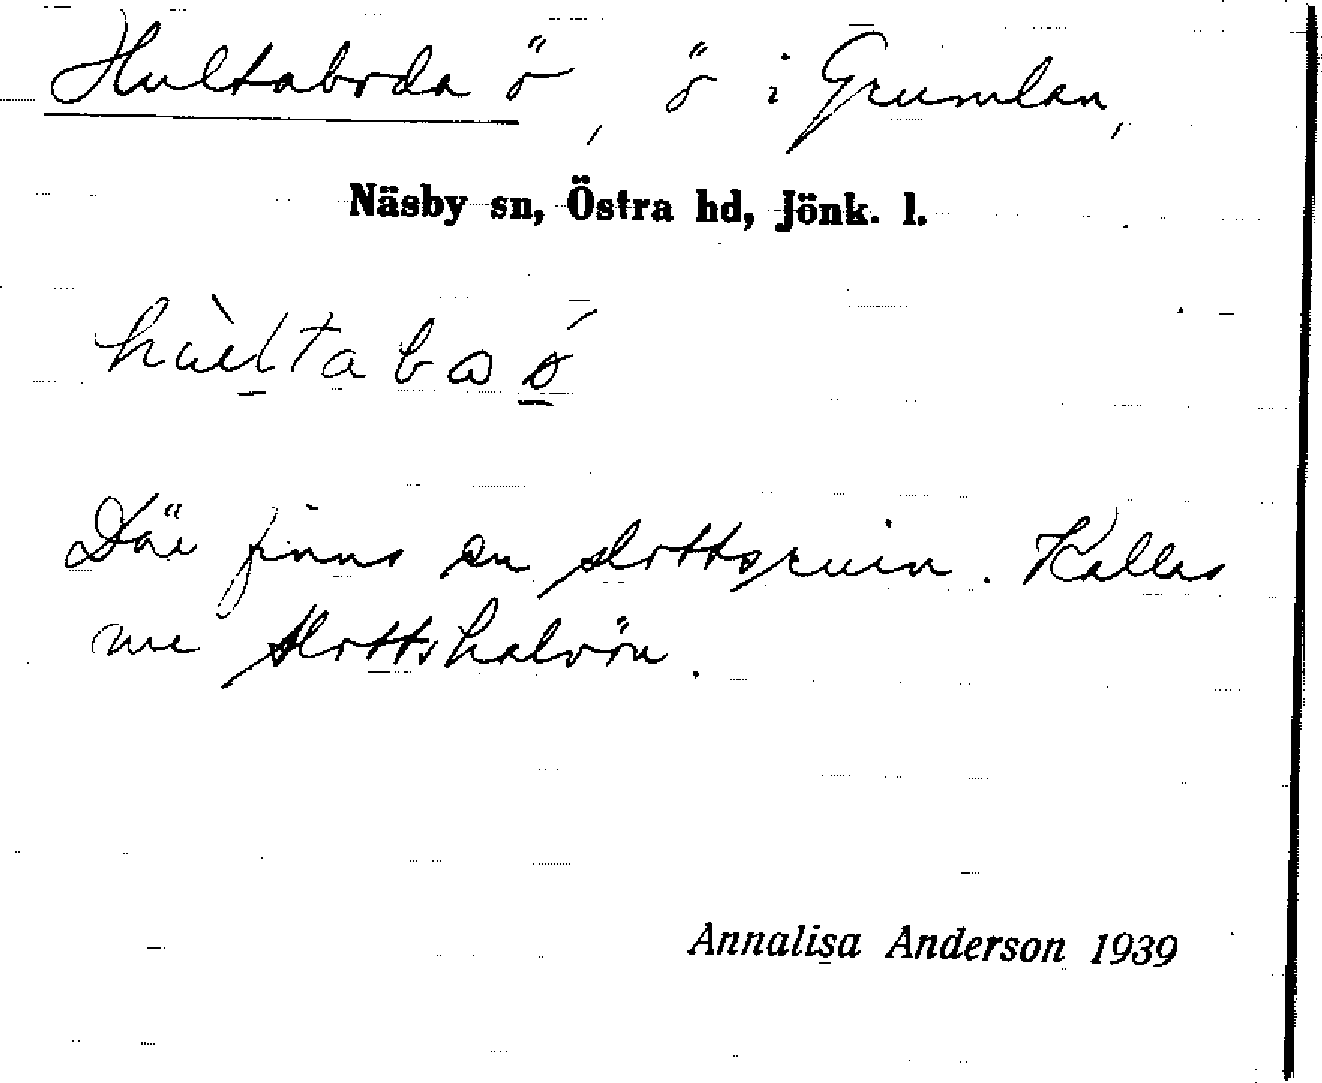 Hultaboda ö, ö i Grumlan,
Näsby sn, Östra hd, Jönk. l.
Där finns en slottsruin. Kallas
nu slottshalvön.
Annalisa Anderson 1939